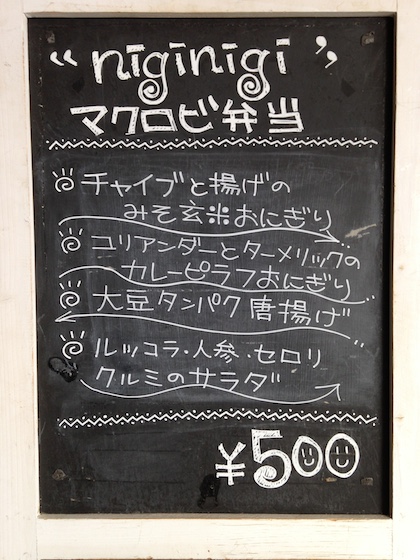 “niginigi”
マクロビ弁当
チャイブと揚げの
みそ玄米おにぎり
コリアンダーとターメリックの
カレーピラフおにぎり
大豆タンパク唐揚げ
ルッコラ・人参・セロリ
クルミのサラダ
¥500